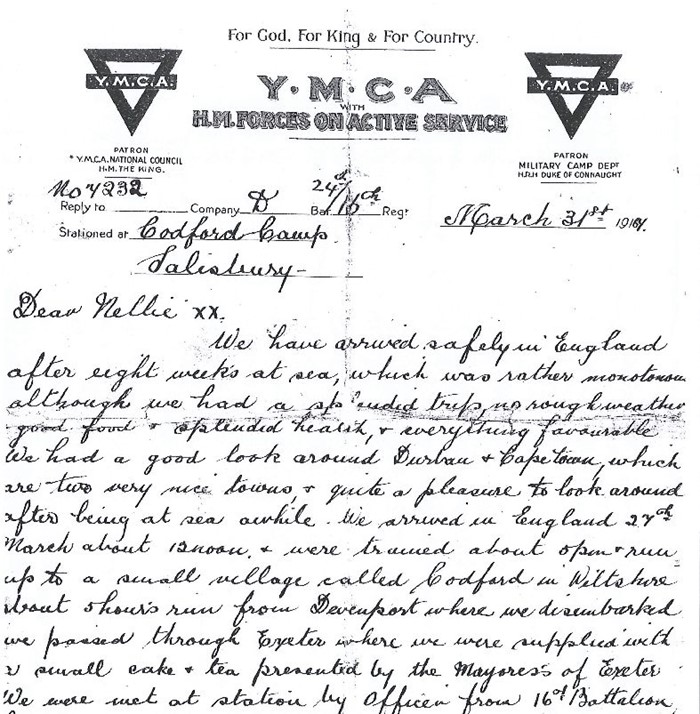 For God, For King & For Country.
Y.M.C.A.
Y.M.C.A
WITH
H.M. FORCES ON ACTIVE SERVICE
Y.M.C.A.
PATRON
Y.M.C.A. NATIONAL COUNCIL
H.M. THE KING.
PATRON
MILITARY CAMP DEPT
H.R.H DUKE OF CONNAUGHT
No 7232
Reply to Company D Bat. 24th/16th Regt
March 31st 191
Stationed at Codford Camp.
Salisbury
Dear Nellie xx.
We have arrived safely in England
after eight weeks at sea, which was rather monotonous
although we had a splendid trip, no rough weather
good food & splended health, & everything favourable
We had a good look around Durban & Capetown, which
are two very nice towns, & quite a pleasure to look around
after being at sea awhile. We arrived in England 27th
March about 12 noon, & were trained about pm & run
up to a small village called Codford in Wiltshire
about 5 hours run from Devenport where we disembarked
we passed through Exeter where we were supplied with
a small cake & tea presented by the Mayoress of Exeter
We were met at station by Officer from 16th Battalion